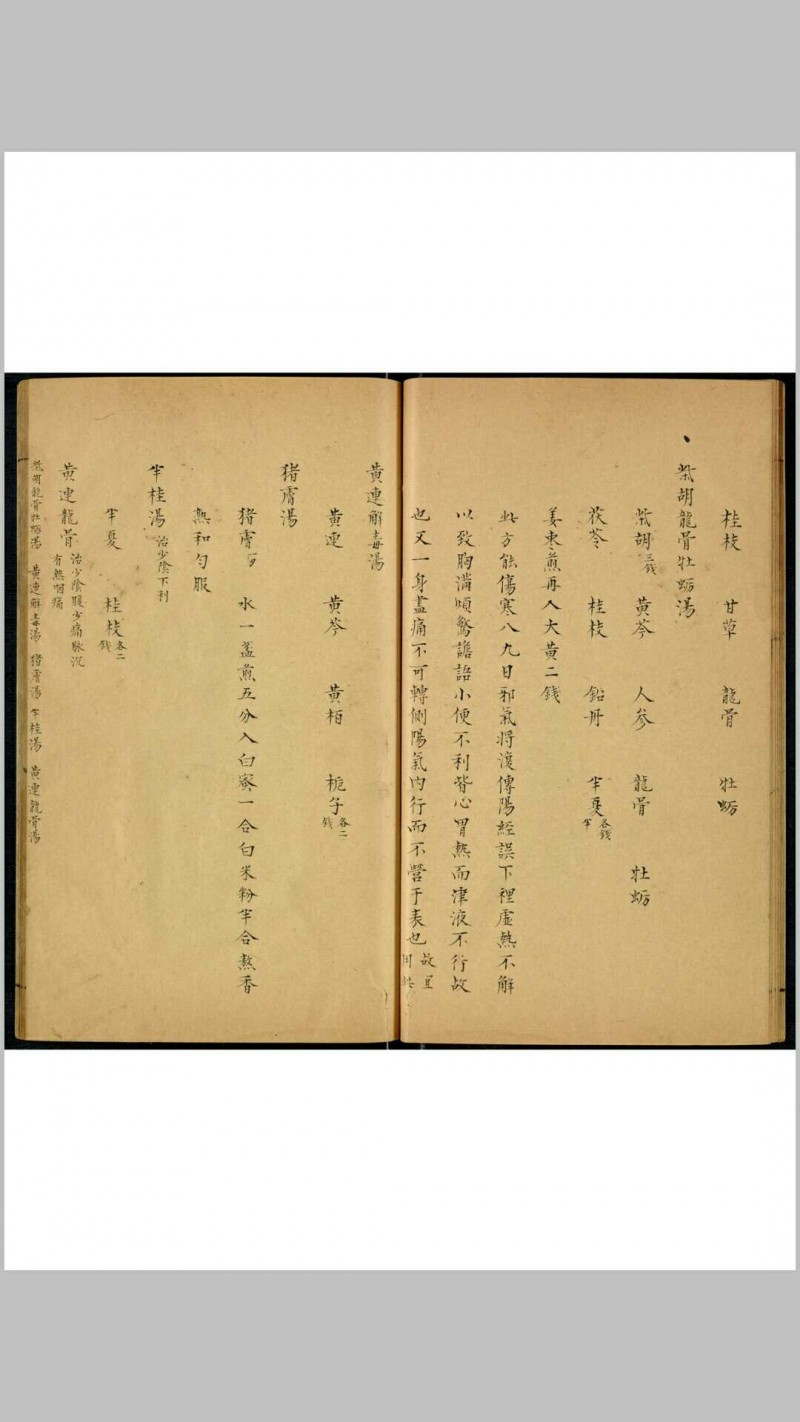 桂枝 甘草 龍骨 牡蛎
柴胡龍骨牡蛎湯
柴胡三錢 黃芩 人參 龍骨 牡蛎
茯苓 桂枝 鉛丹 半夏各錢半
姜枣煎再入大黃二錢
此方能傷寒八九日邪氣將復傳陽経誤下裡虚熱不解
以致胸滿煩驚譫語小便不利皆心胃熱而津液不行故
也又一身盡痛不可轉側陽氣内行而不營于表也故宜用此
黃連解毒湯
黃連 黃芩 黃栢 栀子各二錢
猪膚湯
猪膚 水一盞煎五分入白蜜一合白米粉半合熬香
熟和匀服
半桂湯 治少陰下利
半夏 桂枝各二錢
黃連龍骨 治少陰腹少痛脉沉有熱咽痛
柴胡龍骨牡蛎湯 黃連解毒湯 猪膚湯 半桂湯 黃連龍骨湯